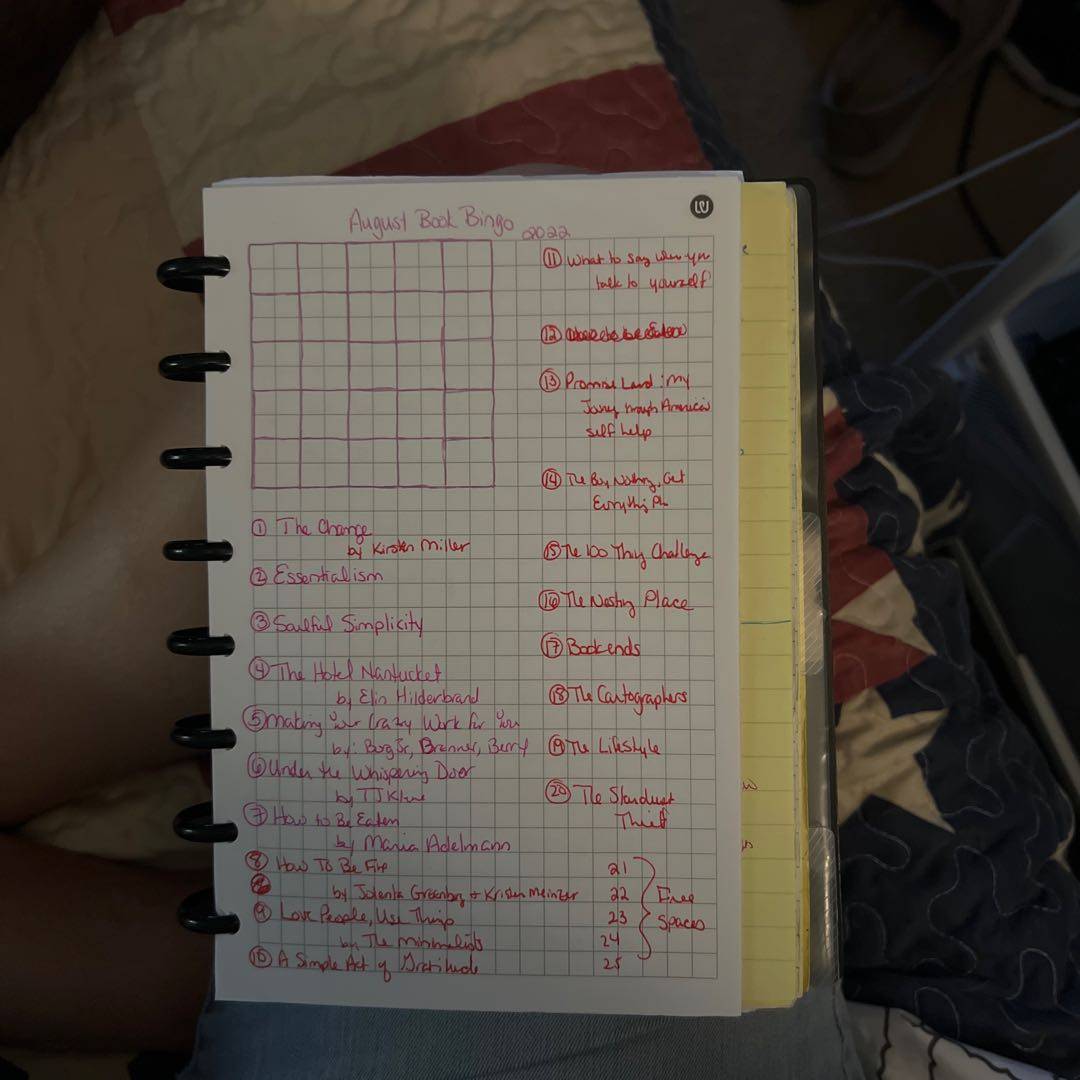 August Book Bingo 2022
① The Change
by Kirsten Miller
② Essentialism
③ Soulful Simplicity
④ The Hotel Nantucket
by Elin Hilderbrand
⑤ Making Your Crazy Work for You
by: Burg Jr, Brenner, Berry
⑥ Under the Whispering Door
by TJ Klune
⑦ How to Be Eaten
by Maria Adelmann
⑧ How To Be Fine
by Jolenta Greenberg + Kristen Meinzer
⑨ Love People, Use Things
by The Minimalists
⑩ A Simple Act of Gratitude
⑪ What to say when you
talk to yourself
⑫
⑬ Promise Land: My
through America's
self help
⑭ The Buy Nothing, Get
Everything Plan
⑮ The 100 Thing Challenge
⑯ The Nesting Place
⑰ Bookends
⑱ The Cartographers
⑲ The Lifestyle
⑳ The Stardust
Thief
21
22 Free
23 Spaces
24
25